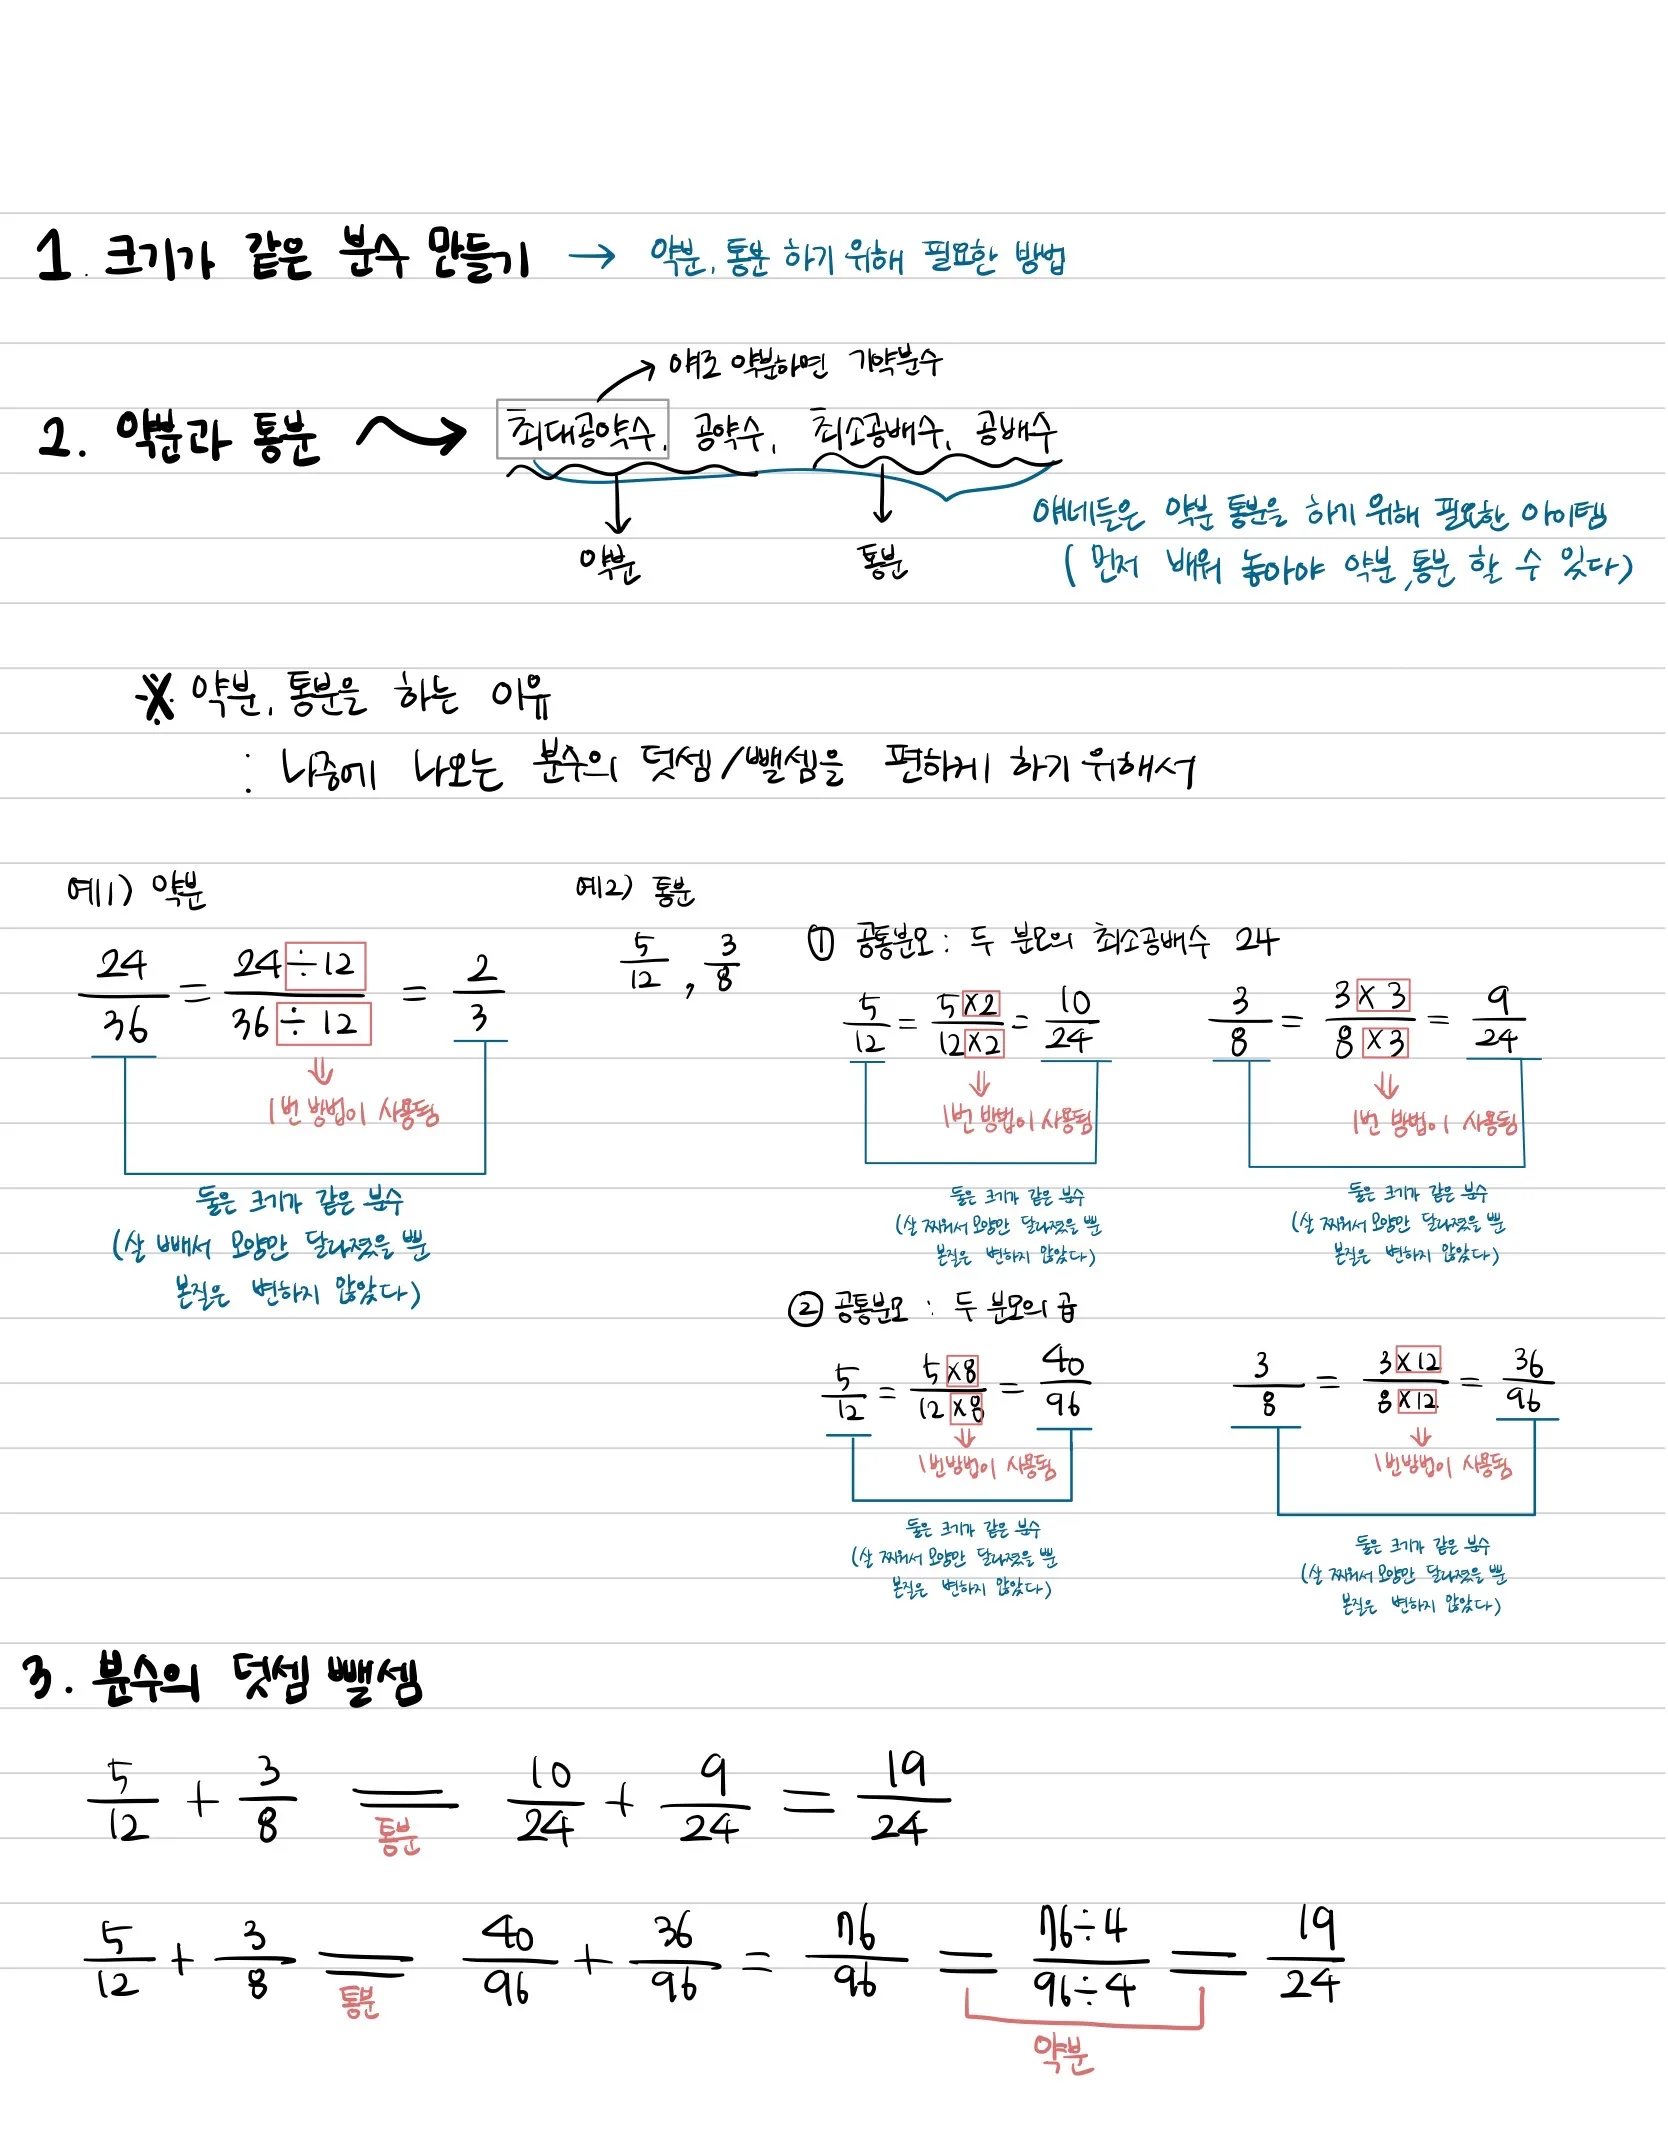 1. 크기가 같은 분수 만들기 → 약분, 통분 하기 위해 필요한 방법
→ 얘로 약분하면 기약분수
2. 약분과 통분 → 최대공약수, 공약수, 최소공배수, 공배수
얘네들은 약분 통분을 하기 위해 필요한 아이템
약분 통분 (먼저 배워 놓아야 약분, 통분 할 수 있다)
※ 약분, 통분을 하는 이유
: 나중에 나오는 분수의 덧셈/뺄셈을 편하게 하기 위해서
예1) 약분
24/36 = 24÷12/36÷12 = 2/3
⇓
1번 방법이 사용됨
둘은 크기가 같은 분수
(살 빼서 모양만 달라졌을 뿐
본질은 변하지 않았다)
예2) 통분
5/12 , 3/8
① 공통분모 : 두 분모의 최소공배수 24
5/12 = 5×2/12×2 = 10/24
⇓
1번 방법이 사용됨
둘은 크기가 같은 분수
(살 찌워서 모양만 달라졌을 뿐
본질은 변하지 않았다)
3/8 = 3×3/8×3 = 9/24
⇓
1번 방법이 사용됨
둘은 크기가 같은 분수
(살 찌워서 모양만 달라졌을 뿐
본질은 변하지 않았다)
② 공통분모 : 두 분모의 곱
5/12 = 5×8/12×8 = 40/96
⇓
1번방법이 사용됨
둘은 크기가 같은 분수
(살 찌워서 모양만 달라졌을 뿐
본질은 변하지 않았다)
3/8 = 3×12/8×12 = 36/96
⇓
1번방법이 사용됨
둘은 크기가 같은 분수
(살 찌워서 모양만 달라졌을 뿐
본질은 변하지 않았다)
3. 분수의 덧셈 뺄셈
5/12 + 3/8 = 10/24 + 9/24 = 19/24
통분
5/12 + 3/8 = 40/96 + 36/96 = 76/96 = 76÷4/96÷4 = 19/24
통분
약분